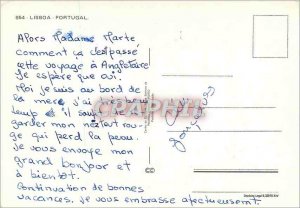 994 - LISBOA - PORTUGAL.
Alors Madame Marte
comment ça c'est passé
cette voyage à Angleterre
je espère que oui.
Moi je suis au bord de
la mere j'ai
temps il
garder mon nez
ge qui perd la peau.
je vous envoye mon
grand bonjour et
à bientôt.
Continuation de bonnes
vacances, je vous embrasse afectueusement.
CPArama